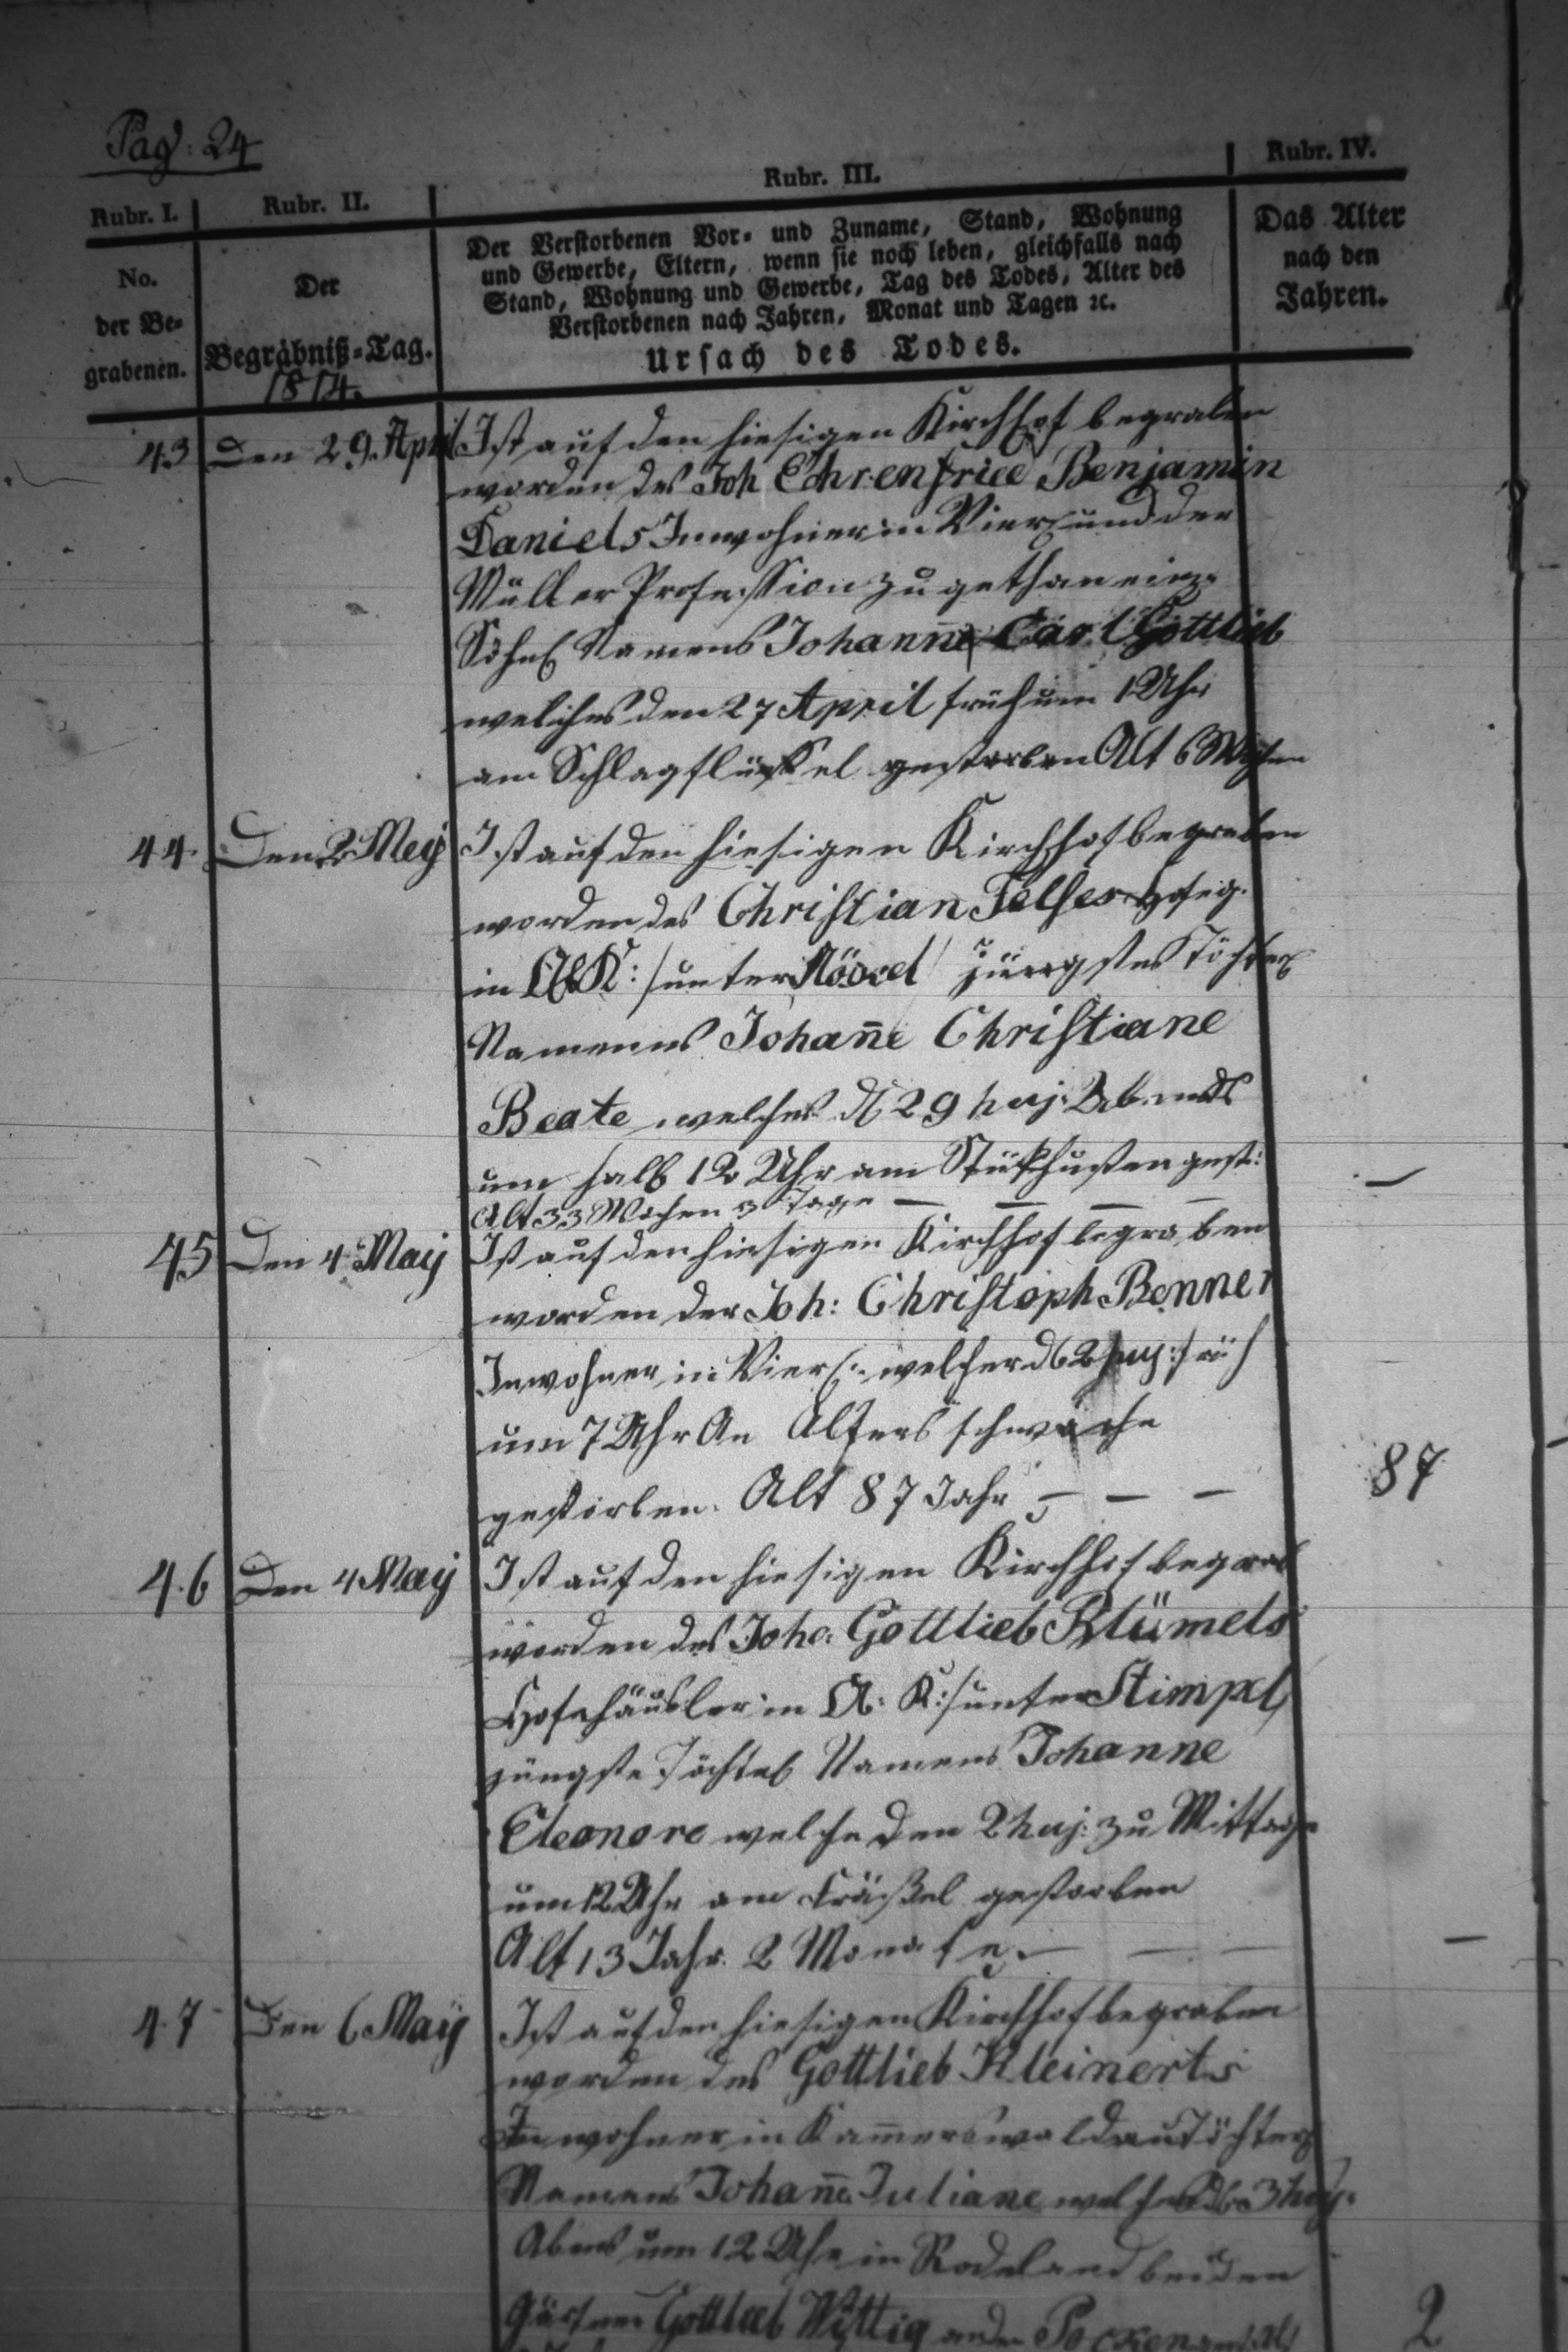 Pag: 24
Rubr. I.
Rubr. II.
Rubr. III.
Rubr. IV.
No.
der Be-
grabenen.
Der
Begräbniß-Tag.
1814.
Der Verstorbenen Vor- und Zuname, Stand, Wohnung
und Gewerbe, Eltern, wenn sie noch leben, gleichfalls nach
Stand, Wohnung und Gewerbe, Tag des Todes, Alter des
Verstorbenen nach Jahren, Monat und Tagen ꝛc.
Ursach des Todes.
Das Alter
nach den
Jahren.
43 Den 29. April Ist auf den hiesigen Kirchhof begraben
worden des Joh Ehrenfried Benjamin
Daniels Inwohner in und der
Müller Profession zugethan
Söhnl Namens Johann Carl Gottlieb
welches den 27 April früh um 1 Uhr
am gestorben Alt 6 Wochen
44. Den 2 Mey Ist auf den hiesigen Kirchhof begraben
worden des Christian
in unter jüngstes Töchterl
Namens Johañe Christiane
Beate welches d 29 huj: Abends
um halb 12 Uhr am Stickhusten gest:
Alt 33 Wochen 3 Tage — — — —
45 Den 4 May Ist auf den hiesigen Kirchhof begraben
worden der Joh: Christoph Benner
Inwohner in welcher d 2 huj: früh
um 7 Uhr An Altersschwäche
gestorben. Alt 87 Jahr — — —
87
46 Den 4 May Ist auf den hiesigen Kirchhof begrab
worden des Joh: Gottlieb Blümels
Hofehäusler in A: K:/unter Stimpel/
jüngste Töchterl Namens Johanne
Eleonore welche den 2 huj: zu Mittage
um 12 Uhr am gestorben
Alt 13 Jahr 2 Monate. — — —
47 Den 6 May Ist auf den hiesigen Kirchhof begraben
worden des Gottlieb Kleinerts
Inwohner in Kam̄erswaldau Töchterl
Namens Johañe Juliane welches d 3 huj:
Abends um 12 Uhr in Rodeland bei den
Gärtner Gottlieb Wittig an den Pocken
2